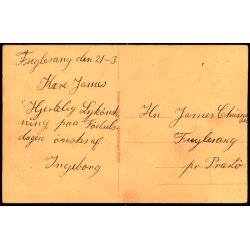 Fuglesang den 21-3
Kære James
Hjertelig Lykønsk
ning paa Fødsels
dagen ønskes af
Ingeborg
Hr. James
Fuglesang
pr Præstø